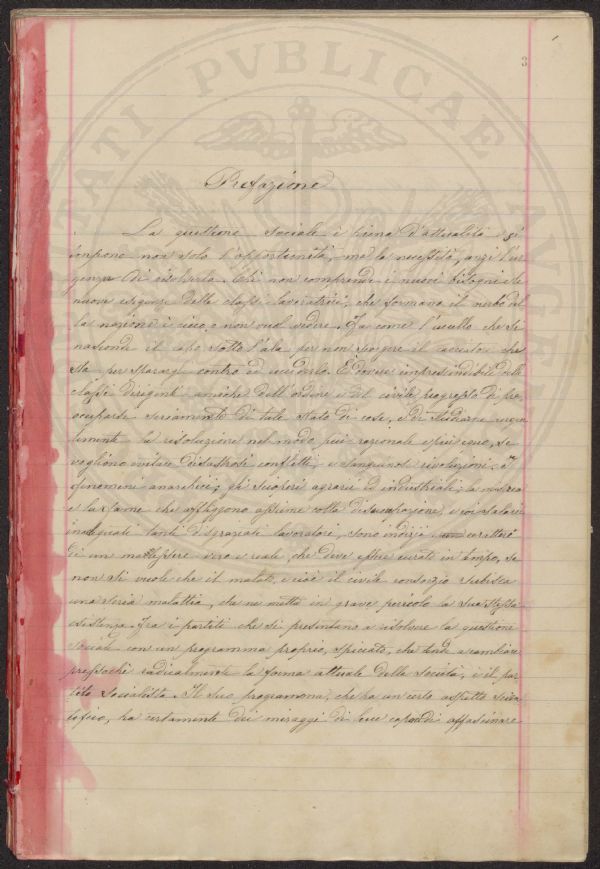 3
Prefazione
La questione sociale è piena d'attualità. S'
impone non solo l'opportunità, ma la necessità, anzi l'ur
genza di risolverla. Chi non comprende i nuovi bisogni e le
nuove esigenze delle classi lavoratrici, che formano il nerbo del
la nazione è cieco, o non vuol vedere. Fa come l'uccello che si
nasconde il capo sotto l'ala per non scorgere il cacciatore che
sta per spararsi contro ed ucciderlo. È dovere imprescindibile delle
classi dirigenti amiche dell'ordine e del civile progresso di pre
occuparsi seriamente di tale stato di cose, e di studiarne urgen
temente la risoluzione nel modo più razionale e più equo, se
vogliono evitare disastrosi conflitti, e sanguinose rivoluzioni. I
fenomeni anarchici; gli scioperi agrarii ed industriali; la miseria
e la fame che affliggono assieme colla disoccupazione e coi salarii
inadeguati tanti disgraziati lavoratori, sono indizii
di un malessere vero e reale, che deve essere curato in tempo, se
non si vuole che il malato, e cioè il civile consorzio subisca
una seria malattia, che ne metta in grave pericolo la sua stessa
esistenza. Fra i partiti che si presentano a risolvere la questione
sociale con un programma proprio, spiccato, che tende a cambiare
pressochè radicalmente la forma attuale della Società, è il par
tito Socialista. Il suo programma, che ha un certo aspetto scien
tifico, ha certamente dei miraggi di luce capaci di affascinare
PVBLICAE